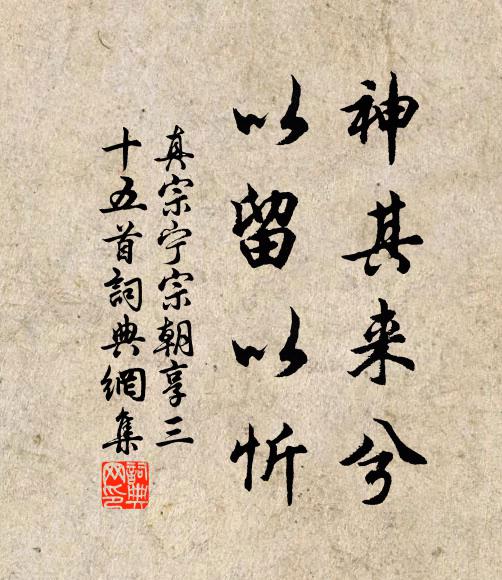 神其来兮
以留以忻
真宗宁宗朝享三
十五首詞典網集
詞典网印